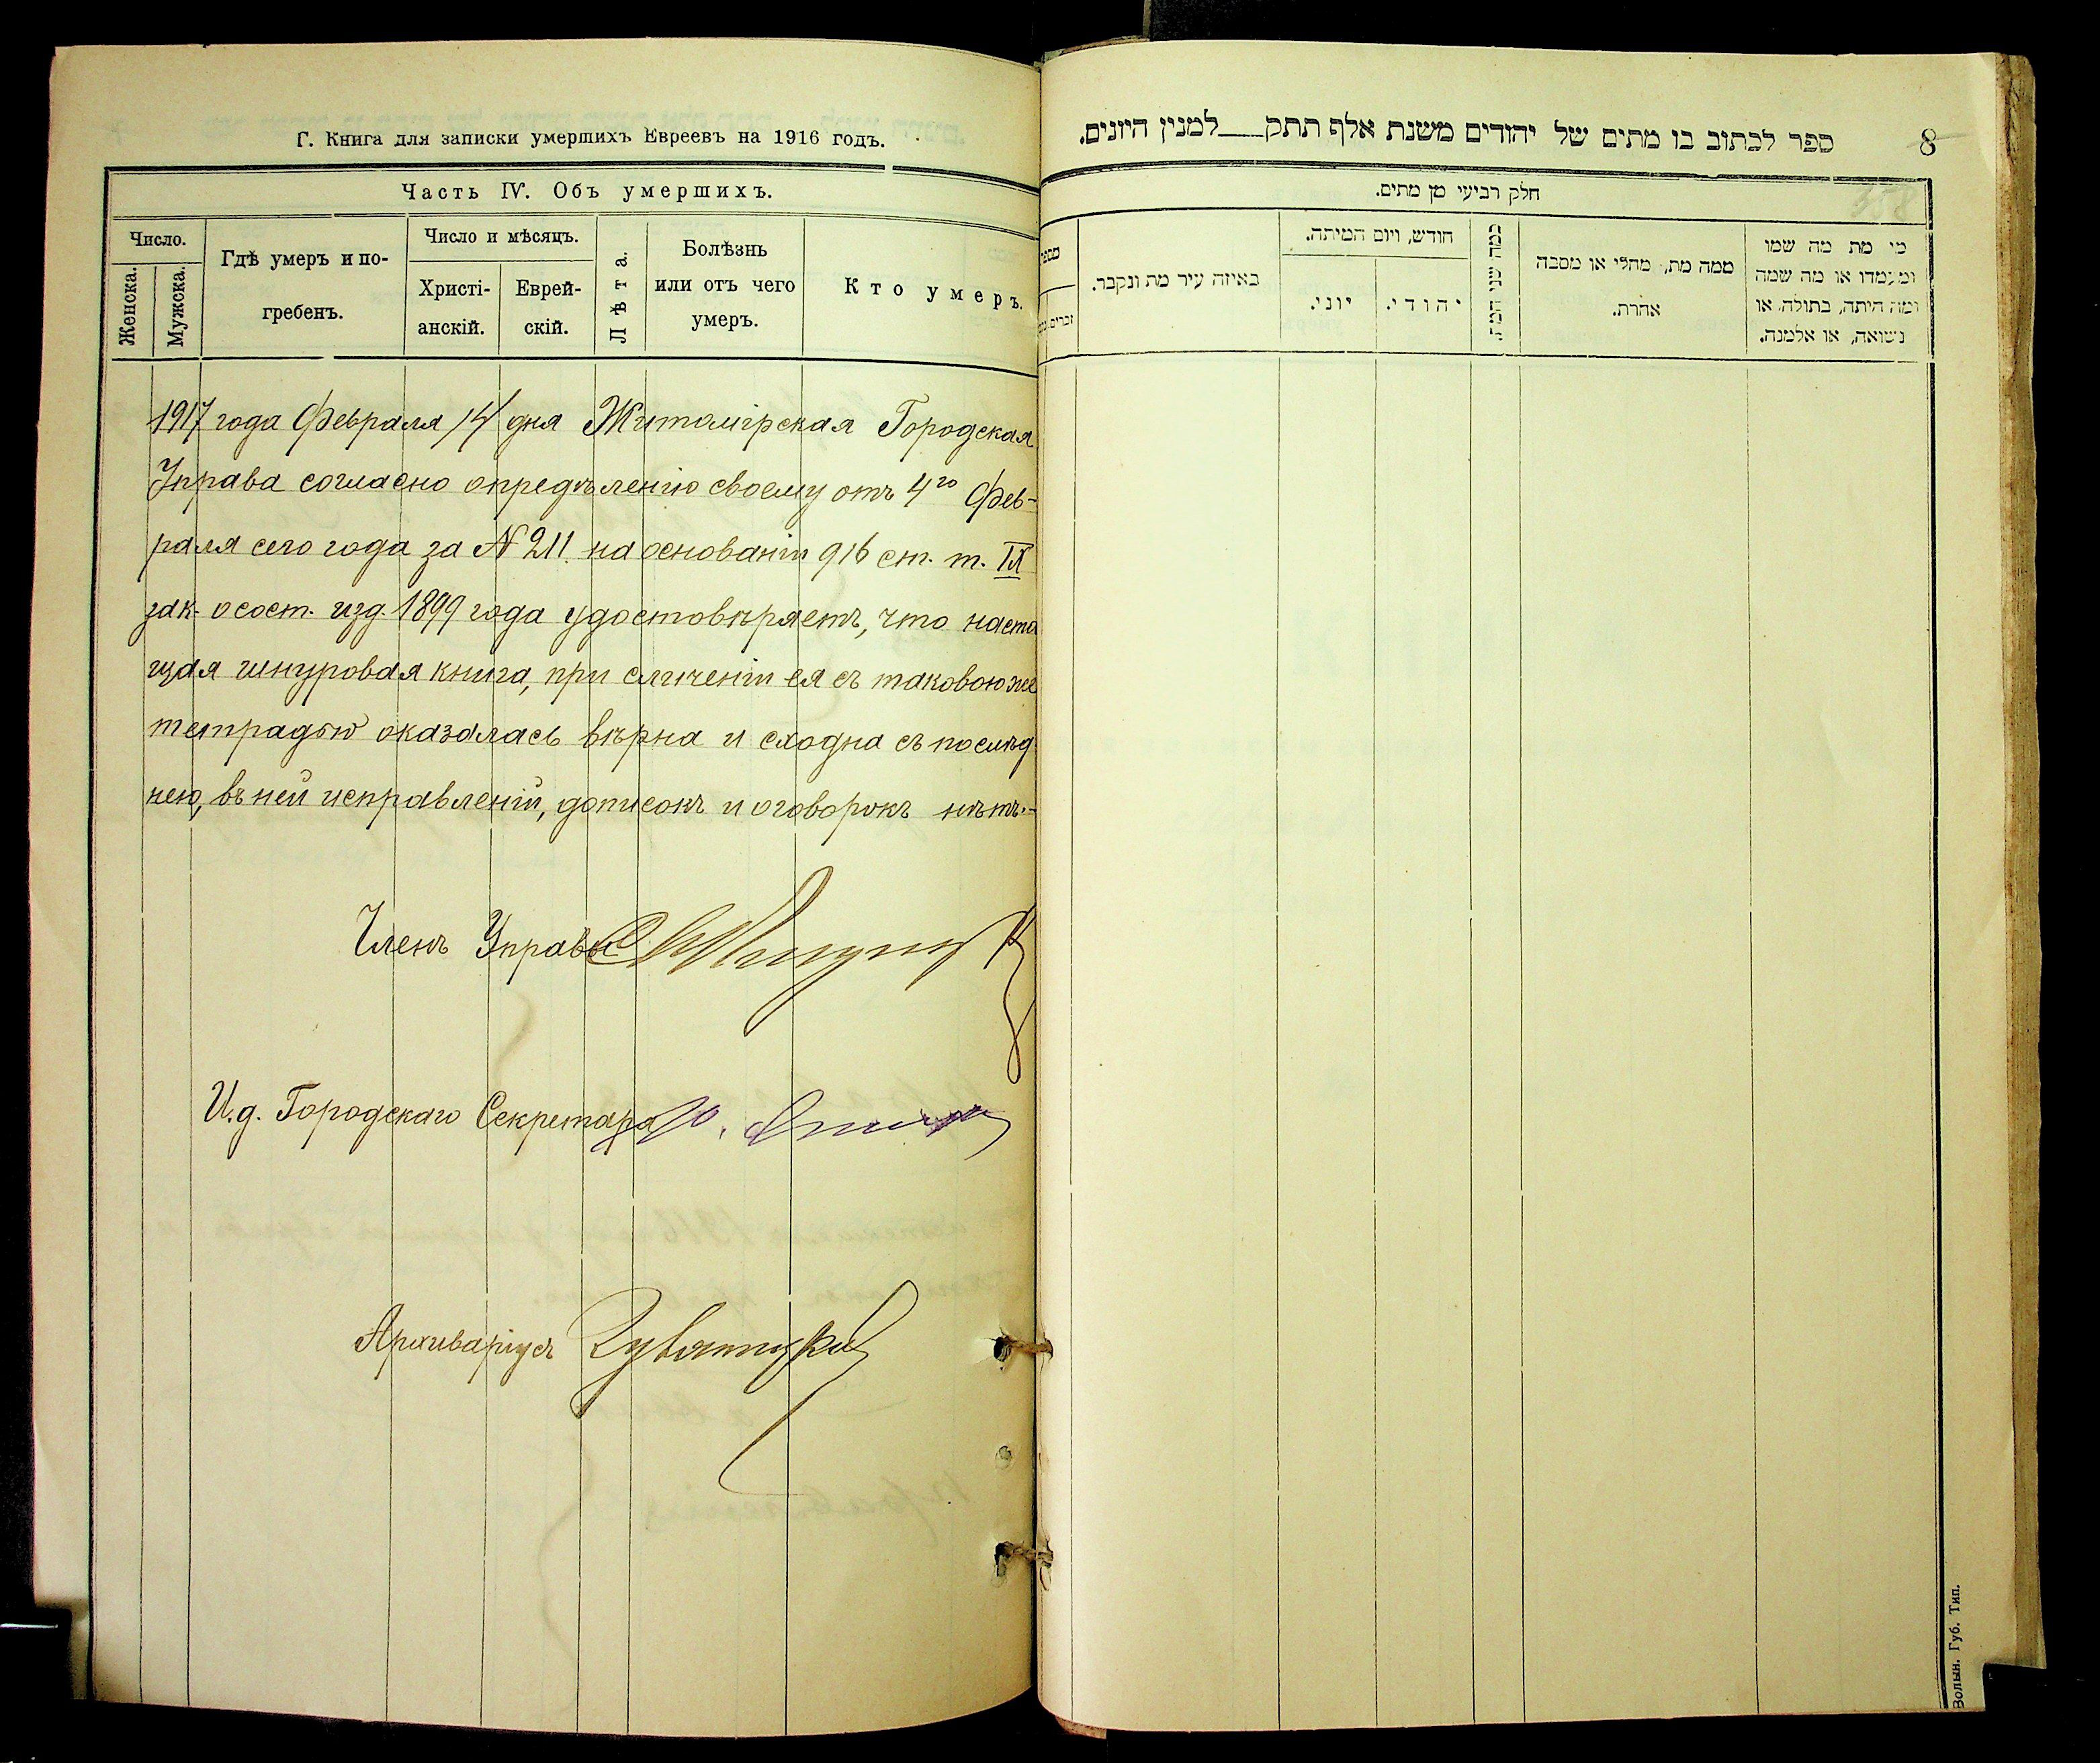 Г. Книга для записки умершихъ Евреевъ на 1916 годъ.
Часть IV. Объ умершихъ.
Число.
Женска.
Мужска.
Гдѣ умеръ и по-
гребенъ.
Число и мѣсяцъ.
Христі-
анскій.
Еврей-
скій.
Лѣта.
Болѣзнь
или отъ чего
умеръ.
Кто умеръ.
1917 года Февраля 14 дня Житомірская Городская
Управа согласно опредѣленію своему отъ 4го Фев-
раля сего года за N 211 на основаніи 916 ст. т. IX
зак. о сост. изд. 1899 года удостовѣряетъ, что наста
щая шнуровая книга, при сличеніи ея съ таковою же
тетрадью оказалась вѣрна и сходна съ послѣд
нею, въ ней исправленій, дописокъ и оговорокъ нѣтъ.-
Членъ Управы
И.д. Городскаго Секретаря
Архиваріусъ
ספר לכתוב בו מתים של יהודים משנת אלף תתק למנין היונים.
8
358
חלק רביעי מן מתים.
מספר
זכרים
באיזה עיר מת ונקבר.
חודש, ויום המיתה.
יוני.
יהודי.
כמה שני המת
ממה מת, מחלי או מסבה
אחרת.
מי מת מה שמו
ומעמדו או מה שמה
ומה היתה, בתולה, או
נשואה, או אלמנה.
Волын. Губ. Тип.